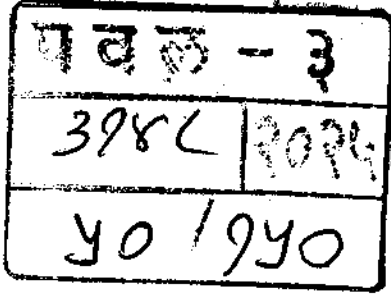 पवल - ३
३१४८ २०२५
५० / १५०